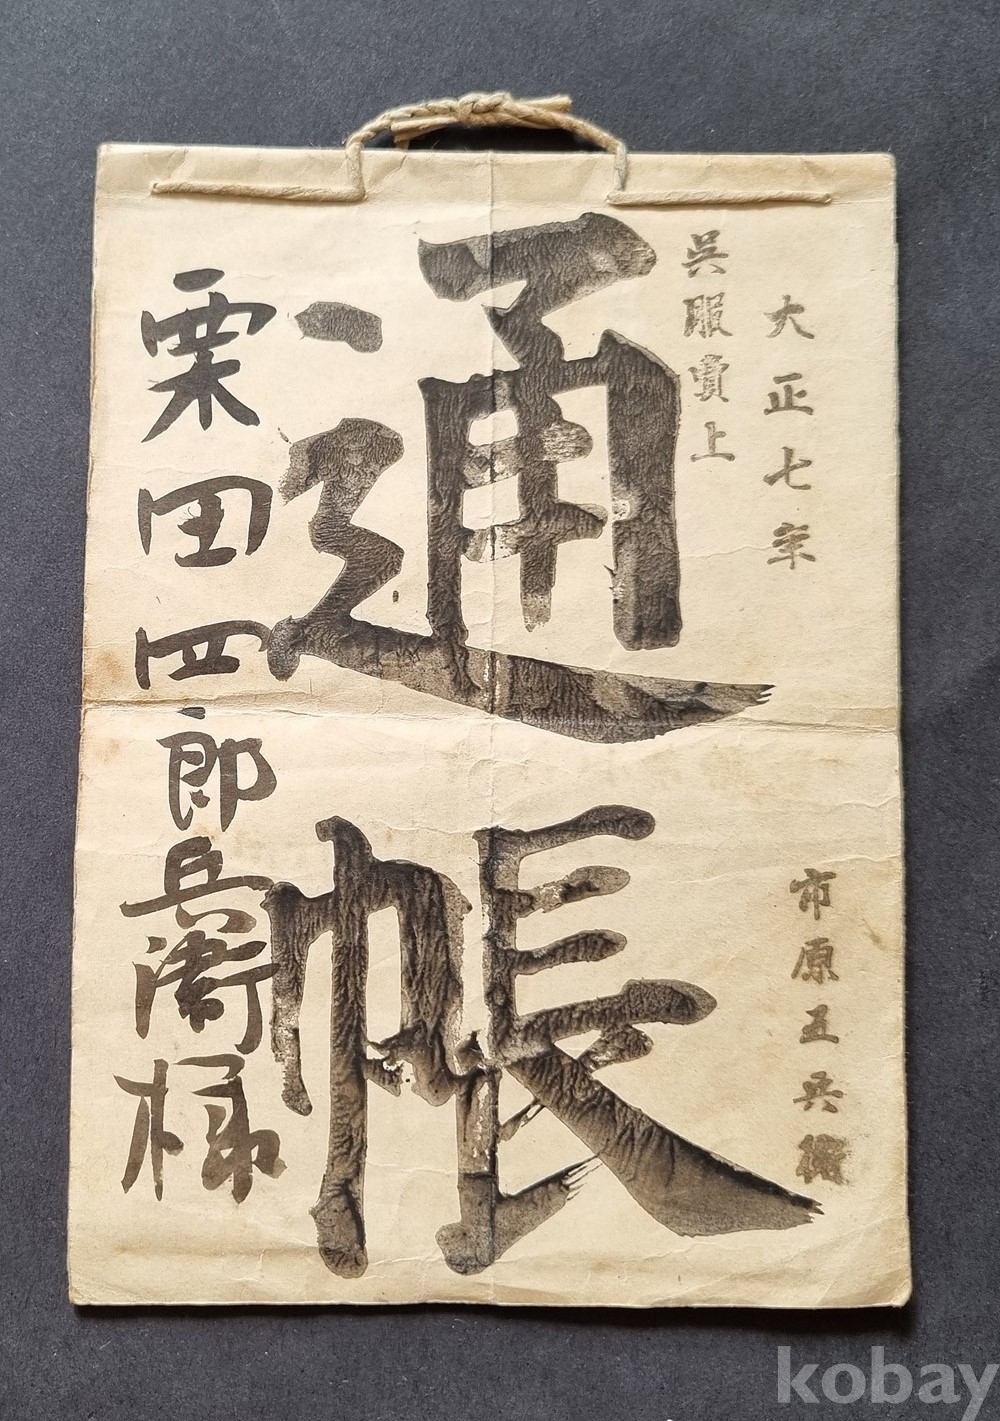 大正七年
市原五兵衛
呉服賣上
通帳
栗田四郎兵衛様
kobay